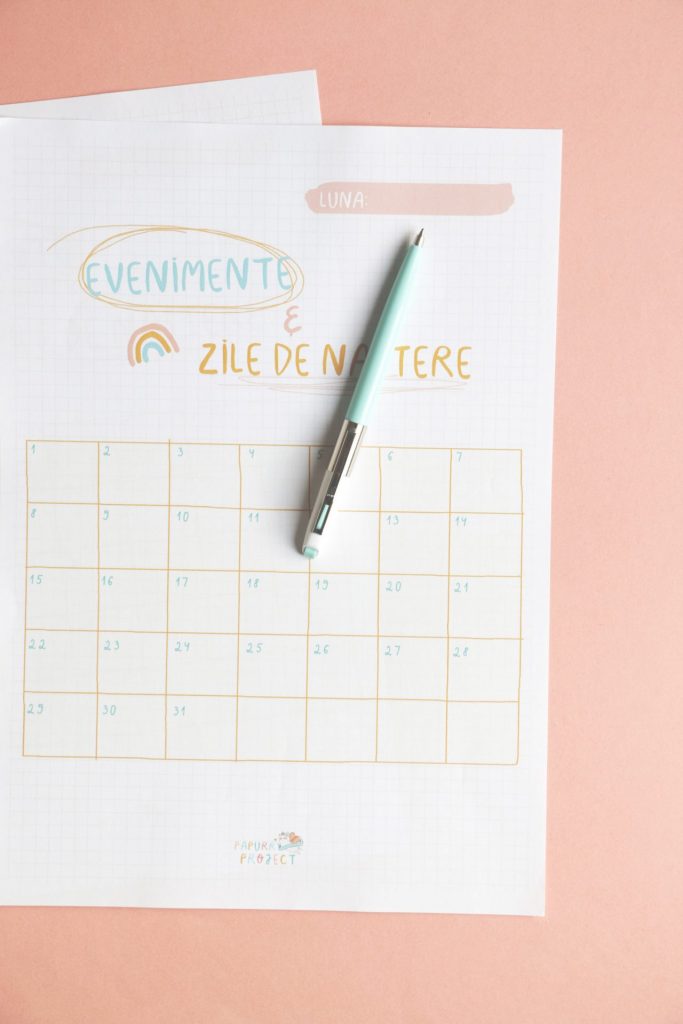 LUNA:
EVENIMENTE
&
ZILE DE NA TERE
1 2 3 4 5 6 7
8 9 10 11 13 14
15 16 17 18 19 20 21
22 23 24 25 26 27 28
29 30 31
PAPURA
PROJECT